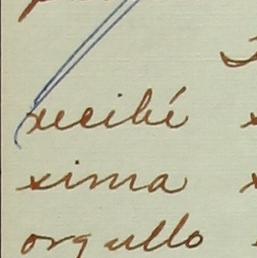 recibé
xima
orgullo